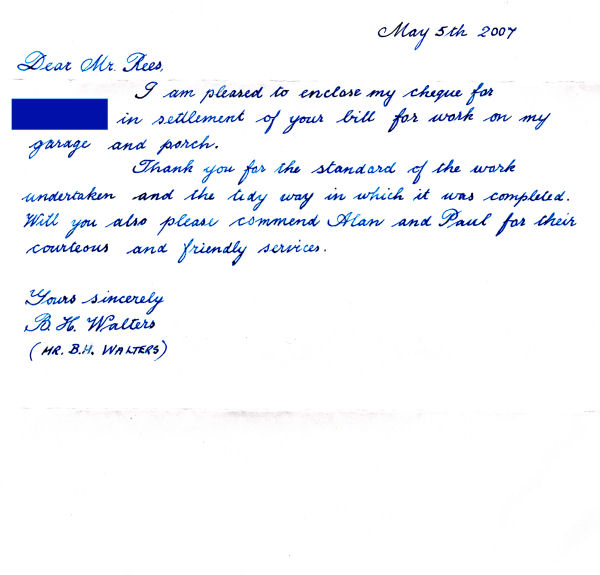 May 5th 2007
Dear Mr. Rees,
I am pleased to enclose my cheque for
in settlement of your bill for work on my
garage and porch.
Thank you for the standard of the work
undertaken and the tidy way in which it was completed.
Will you also please commend Alan and Paul for their
courteous and friendly services.
Yours sincerely
B. H. Walters
(MR. B.H. WALTERS)